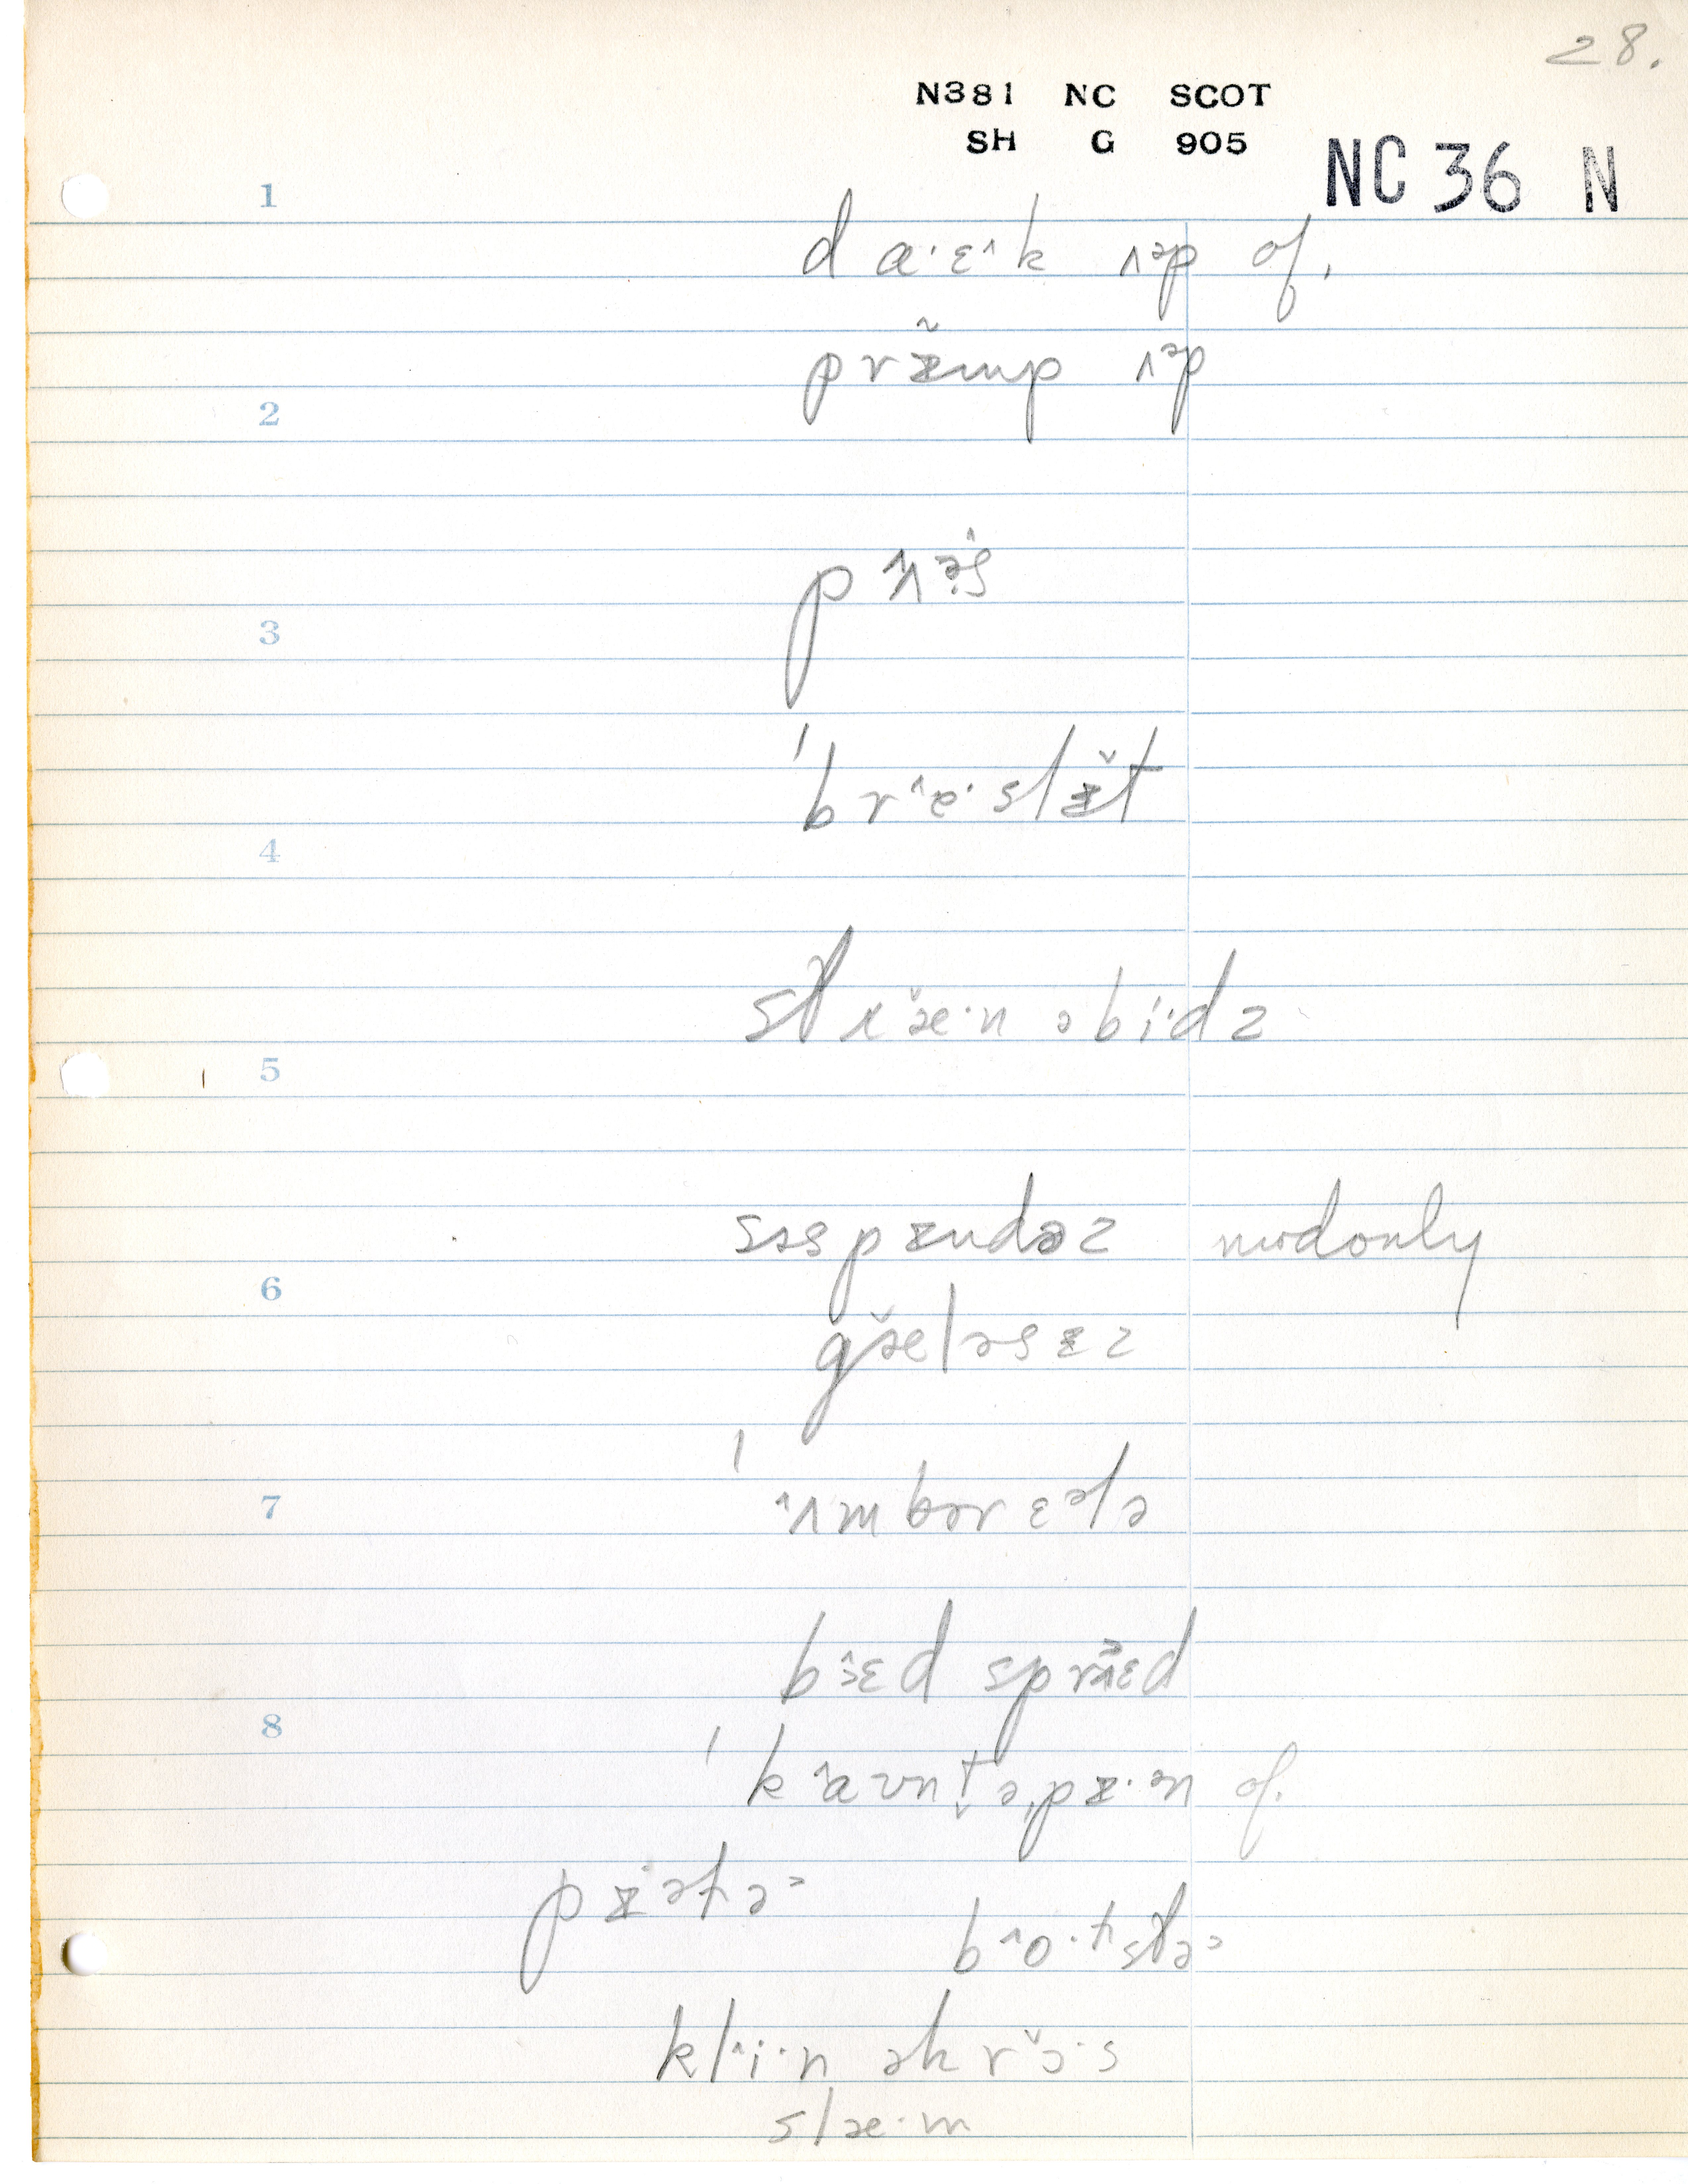 28.
N381 NC SCOT
SH G 905
NC 36 N
1
d ɑ·ɛ˄k ʌəp of.
2
prɪ̃mp ʌəp
pʌəs
3
ˈbr˄e·slɪ̆t
4
stræ̆·n əbi·dz
5
səspɪndəz modonly
6
gæ̆ləsɪz
7
ˈʌmbərɛələ
bɛd sprɛd
8
ˈkaʊntəˌpɪ·ən of.
pɪətə
b˄o·lstə
kl˄i·n əkrɔ̆·s
slæ·m